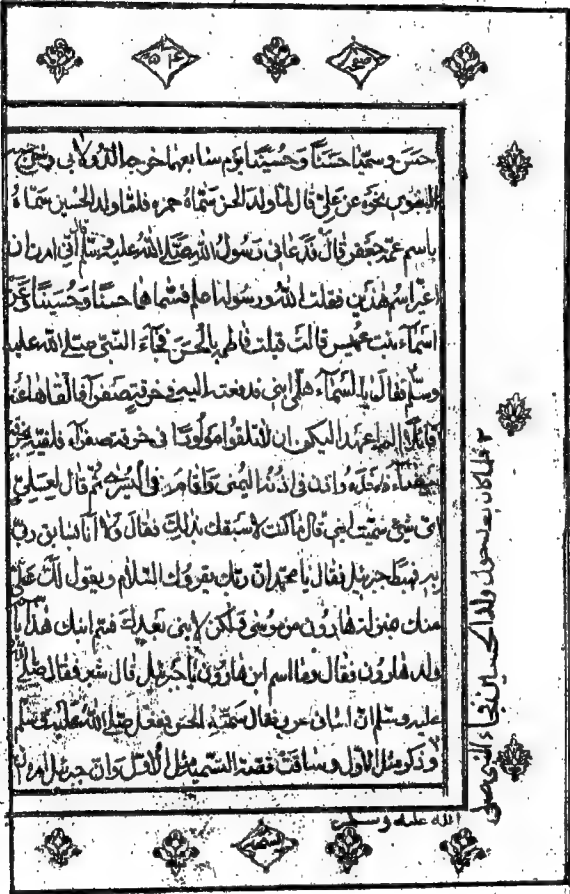 حسن وسمينا حسنا وحسينا يوم سابعهما خرجه الدولابي وخرج
البغوي نحوه عن علي قال لما ولد الحسن سماه حمزه فلما ولد الحسين سماه
باسم عمه جعفر قال فدعاني رسول الله صلى الله عليه وسلم قال اني امرت ان
اغير اسم هذين فقلت الله ورسوله اعلم فسماهما حسنا وحسينا وعن
اسماء بنت عميس قالت قبلت فاطمه بالحسن فجاء النبي صلى الله عليه
وسلم فقال يا اسماء هلمي ابني فدفعته اليه في خرقة صفراء فالقاها عنه
قائلا الم اعهد اليكن ان لا تلفوا مولودا في خرقة صفراء فلففته بخرقة
بيضاء فاخذه واذن في اذنه اليمنى واقام في اليسرى ثم قال لعلي
اي شيء سميت ابني قال ما كنت لاسبقك بذلك فقال ولا انا سابق ربي
به فهبط جبرئيل فقال يا محمد ان ربك يقرؤك السلام ويقول لك علي
منك بمنزلة هارون من موسى ولكن لا نبي بعدك فسم ابنك هذا باسم
ولد هارون فقال وما اسم ابن هارون يا جبرئيل قال شبر فقال صلى الله
عليه وسلم ان لساني عربي فقال سمه الحسن ففعل صلى الله عليه وسلم
وذكر مثل الاول وساقت قصة التسمية مثل الاول وان جبرئيل امره
فلما كان بعد حول ولد الحسين فجاء النبي صلى
الله عليه وسلم